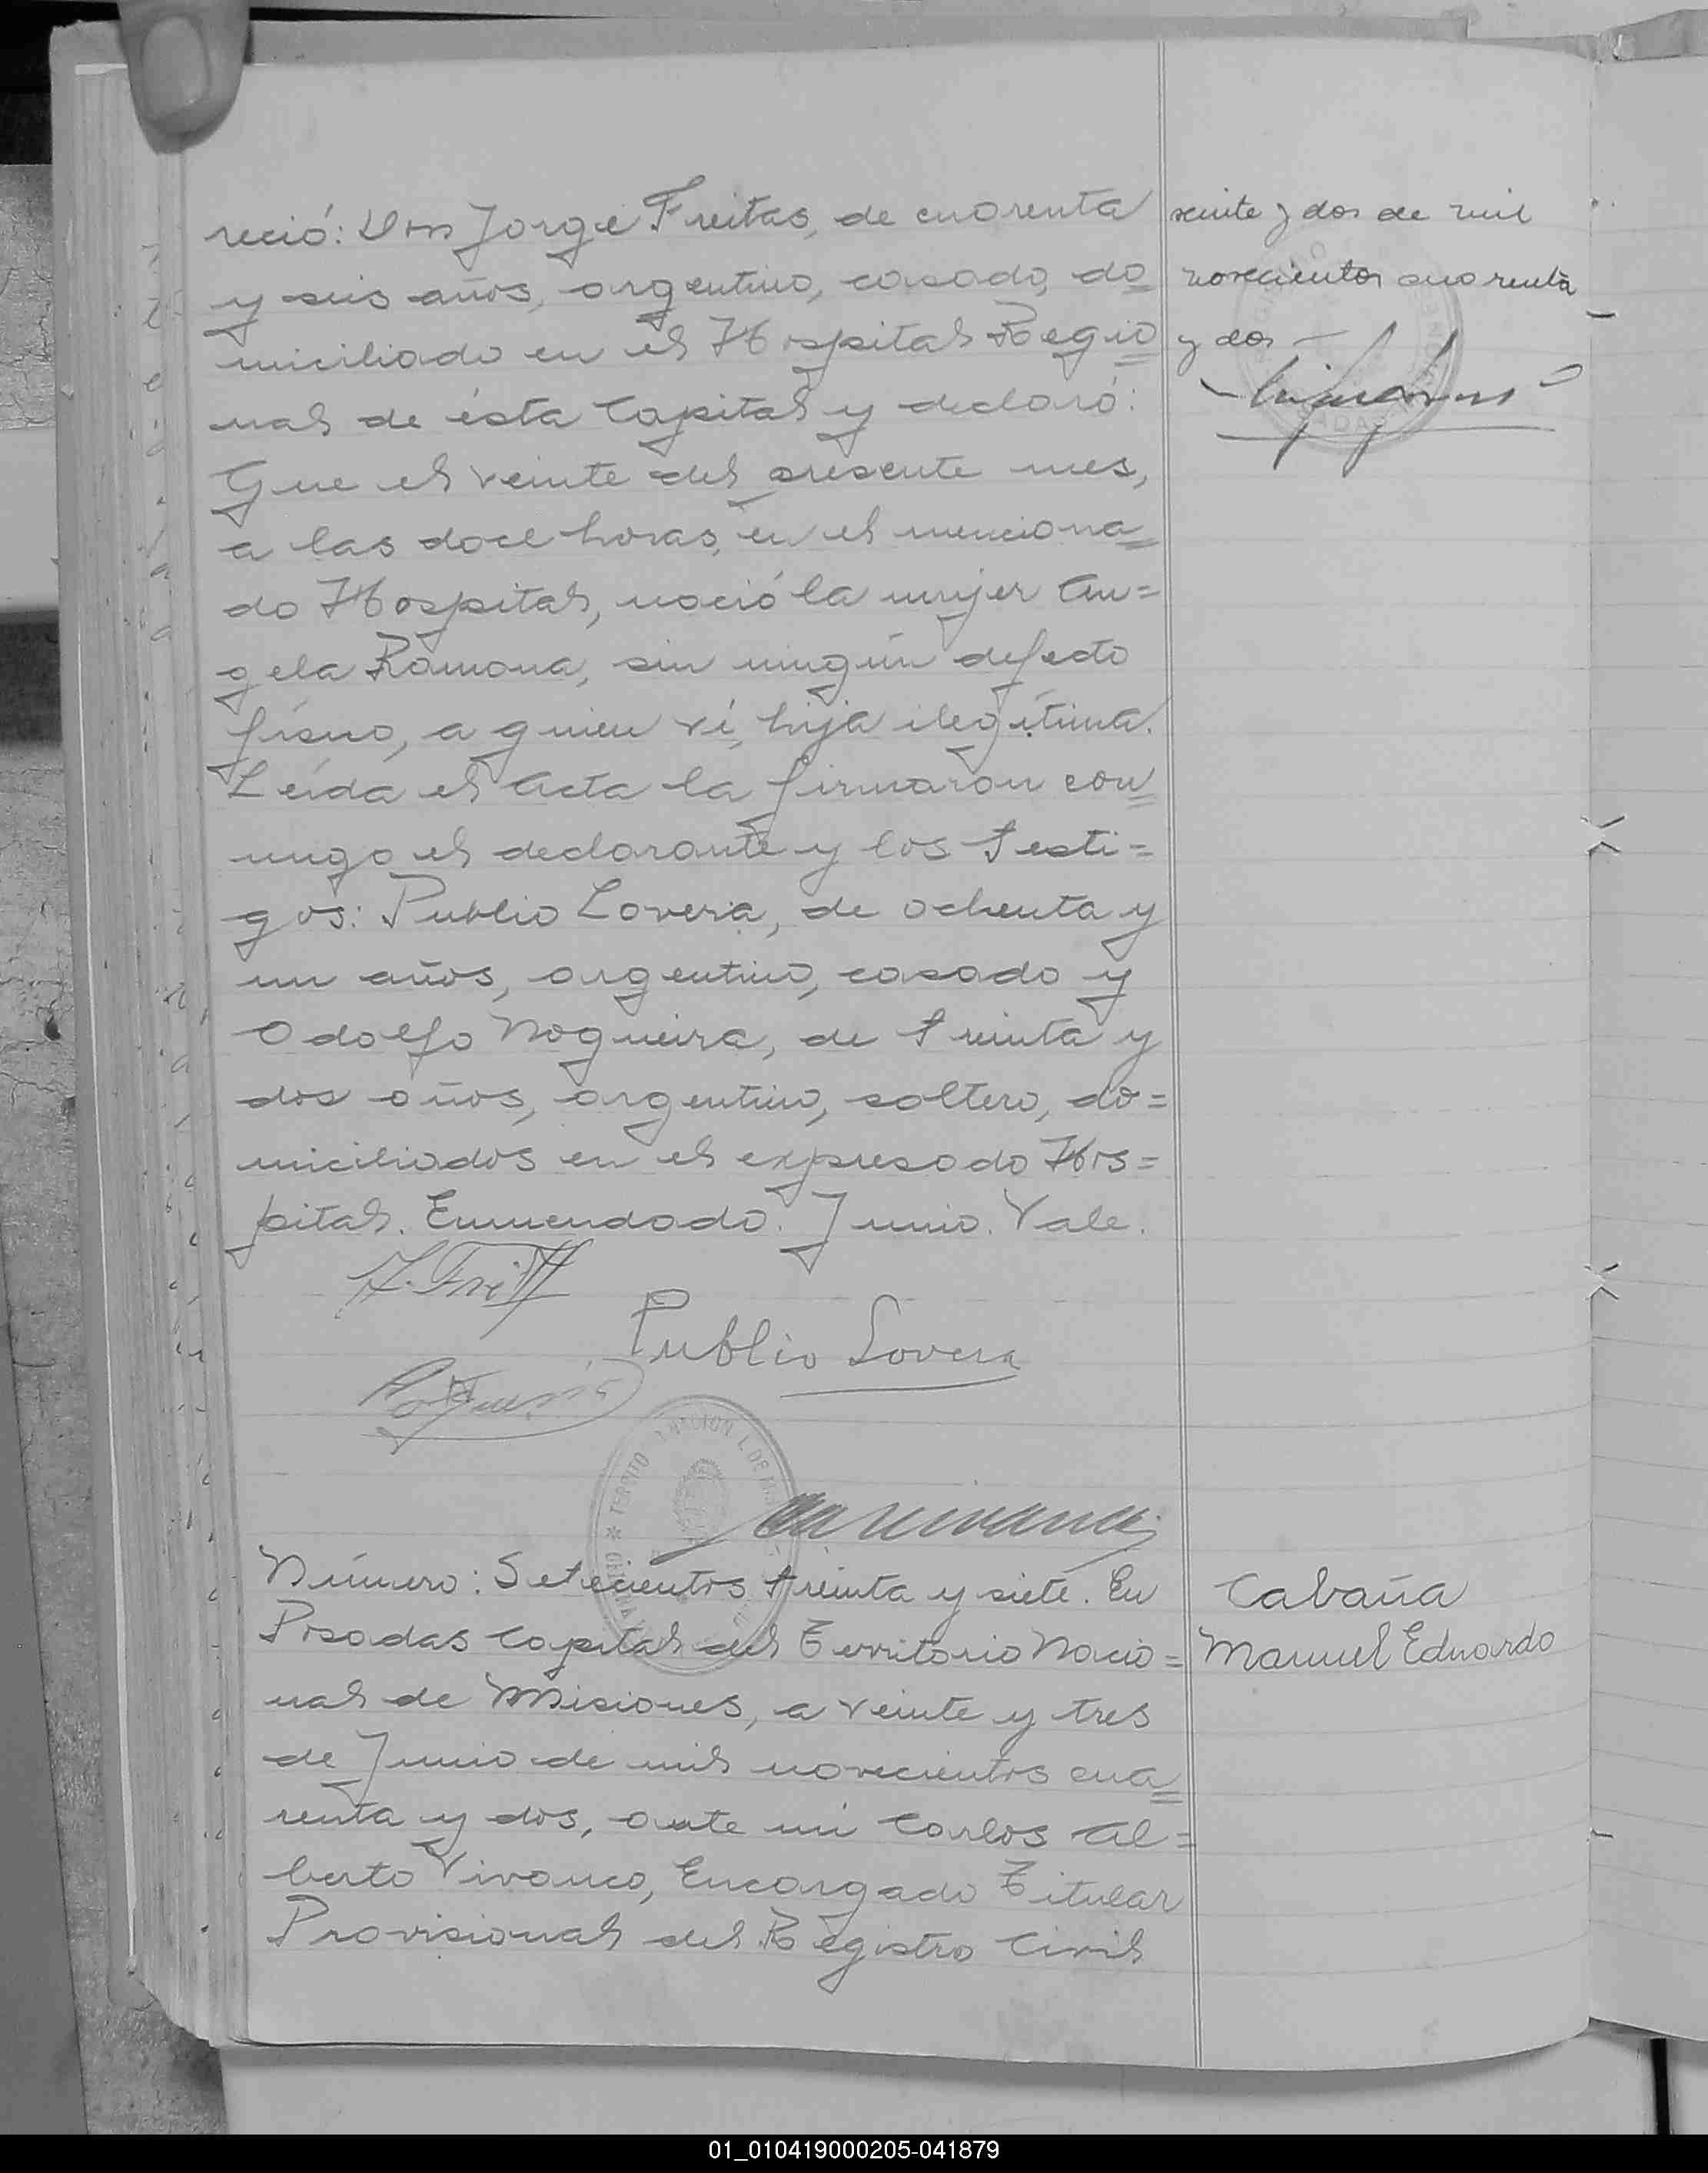 reció: Don Jorge Freitas, de cuarenta
y seis años, argentino, casado, do=
miciliado en el Hospital Regio=
nal de ésta Capital y declaró:
Que el veinte del presente mes,
a las doce horas, en el menciona=
do Hospital, nació la mujer An=
gela Ramona, sin ningún defecto
físico, a quien ví, hija ilegítima.
Leída el acta la firmaron con=
migo el declarante y los testi=
gos: Publio Lovera, de ochenta y
un años, argentino, casado y
Odolfo Nogueira, de treinta y
dos años, argentino, soltero, do=
miciliados en el expresado Hos=
pital. Enmendado. Junio. Vale.
Publio Lovera
Número: Setecientos treinta y siete. En
Posadas Capital del Territorio Nacio=
nal de Misiones, a veinte y tres
de Junio de mil novecientos cua=
renta y dos, ante mi Carlos Al=
berto Vivanco, Encargado Titular
Provisional del Registro Civil
veinte y dos de mil
novecientos cuarenta
y dos —
Cabaña
Manuel Eduardo
01_010419000205-041879